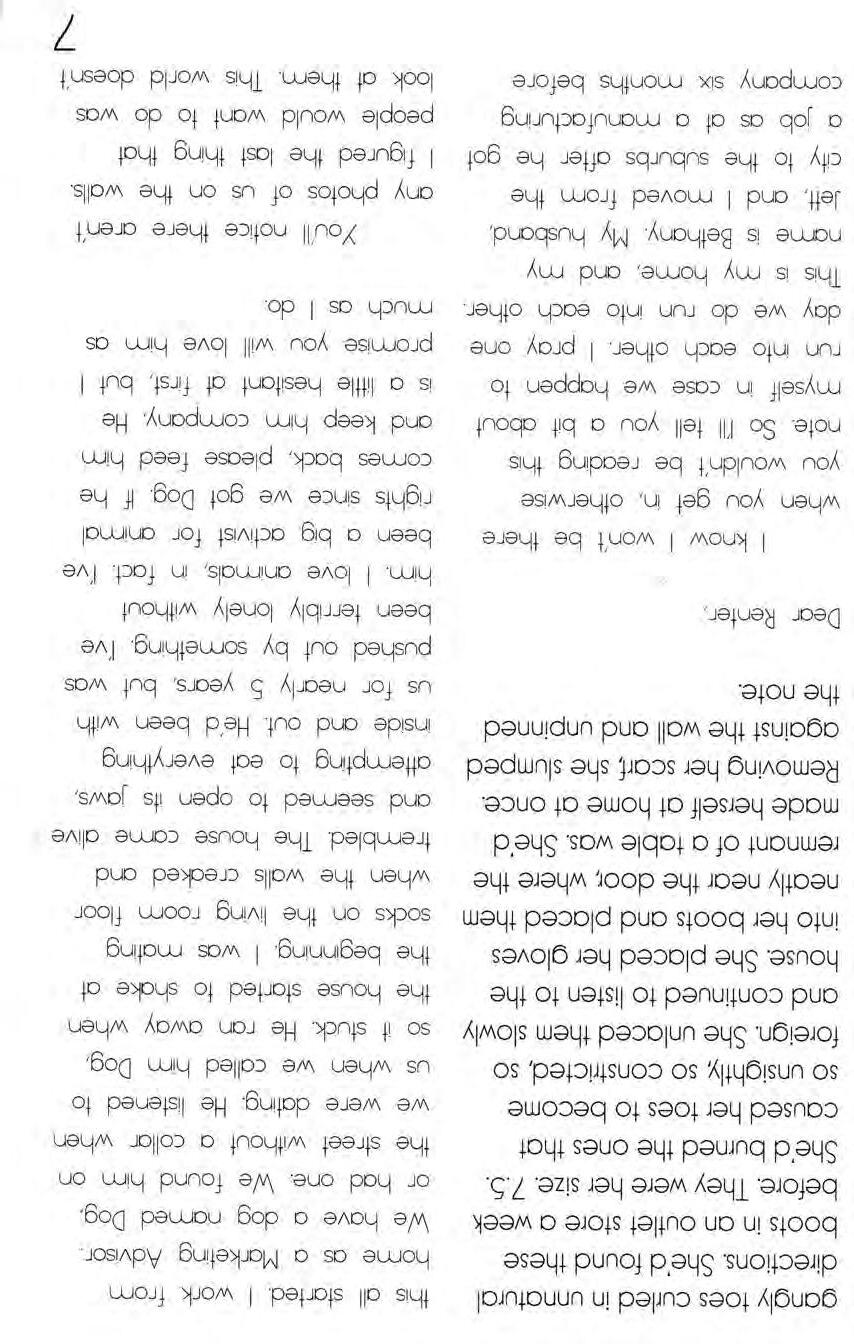 gangly toes curled in unnatural
directions. She'd found these
boots in an outlet store a week
before. They were her size. 7.5.
She'd burned the ones that
caused her toes to become
so unsightly, so constricted, so
foreign. She unlaced them slowly
and continued to listen to the
house. She placed her gloves
into her boots and placed them
neatly near the door, where the
remnant of a table was. She'd
made herself at home at once.
Removing her scarf, she slumped
against the wall and unpinned
the note.
Dear Renter,
I know I won't be there
when you get in, otherwise
you wouldn't be reading this
note. So I'll tell you a bit about
myself in case we happen to
run into each other. I pray one
day we do run into each other.
This is my home, and my
name is Bethany. My husband,
Jeff, and I moved from the
city to the suburbs after he got
a job as at a manufacturing
company six months before
this all started. I work from
home as a Marketing Advisor.
We have a dog named Dog,
or had one. We found him on
the street without a collar when
we were dating. He listened to
us when we called him Dog,
so it stuck. He ran away when
the house started to shake at
the beginning. I was mating
socks on the living room floor
when the walls creaked and
trembled. The house came alive
and seemed to open its jaws,
attempting to eat everything
inside and out. He'd been with
us for nearly 5 years, but was
pushed out by something. I've
been terribly lonely without
him. I love animals, in fact. I've
been a big activist for animal
rights since we got Dog. If he
comes back, please feed him
and keep him company. He
is a little hesitant at first, but I
promise you will love him as
much as I do.
You'll notice there aren't
any photos of us on the walls.
I figured the last thing that
people would want to do was
look at them. This world doesn't
7